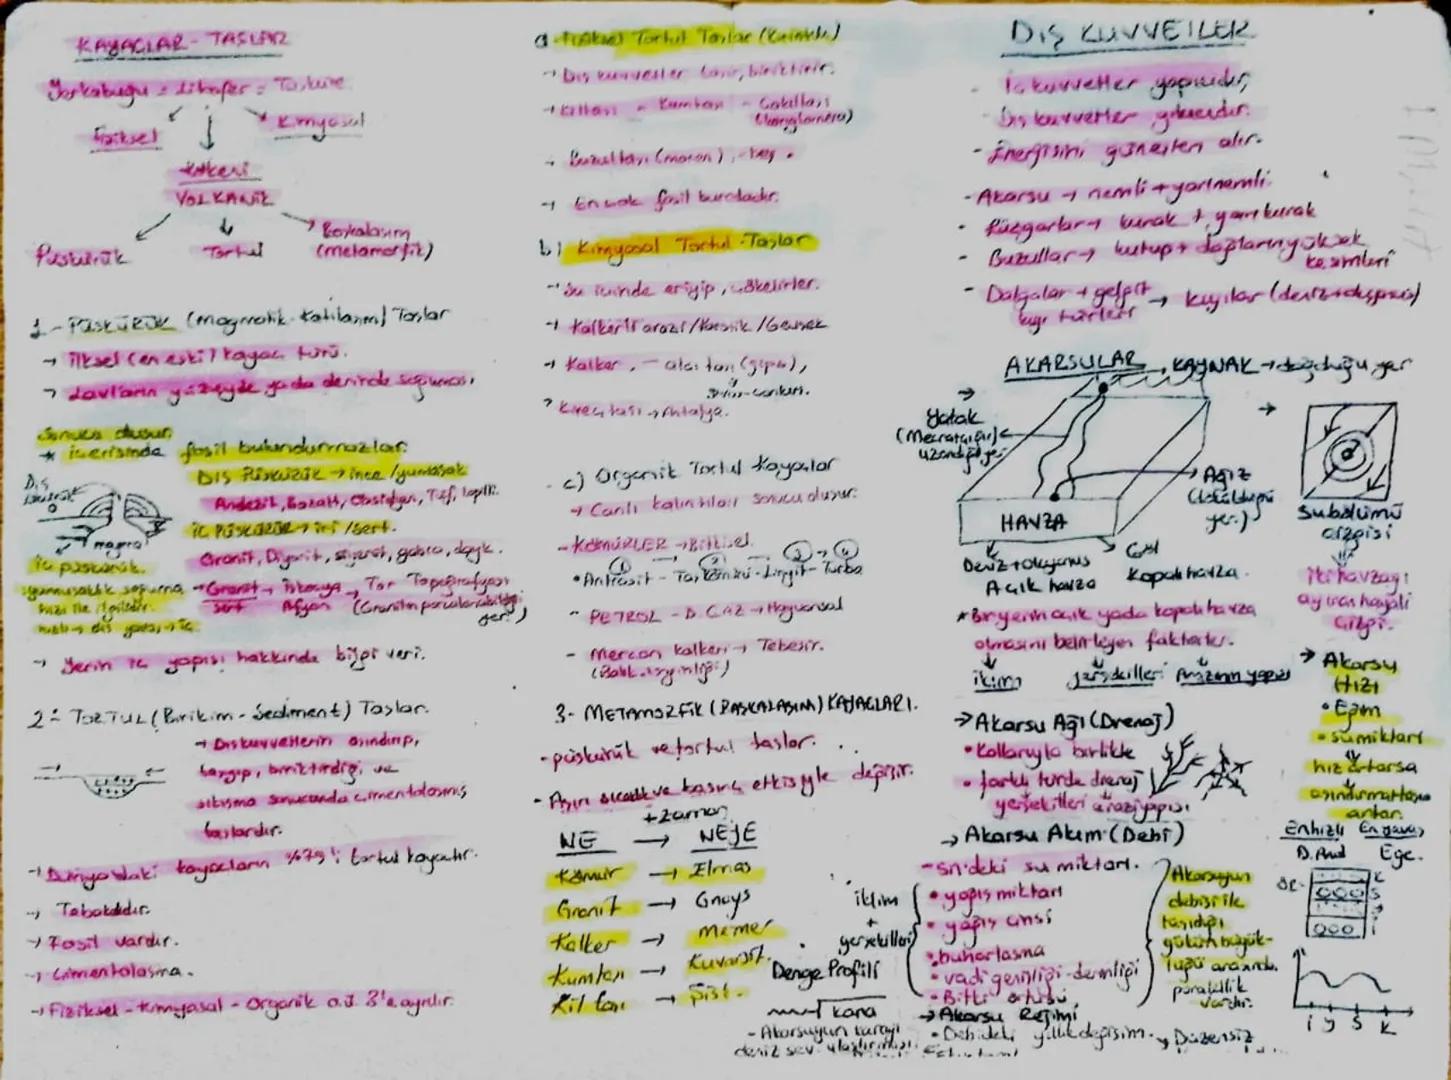 KAYAÇLAR - TAŞLAR
Yerkabuğu = Litosfer = Taşküre
Fiziksel
Kimyasal
Kökeni
VOLKANİK
Püskürük
Tortul
Başkalaşım
(metamorfik)
1- PÜSKÜRÜK (magmatik-Katılaşım) Taşlar
→ İlksel (en eski) kayaç türü.
→ Lavların yüzeyde ya da derinde soğuması
sonucu oluşur.
* içerisinde fosil bulundurmazlar.
DIŞ PÜSKÜRÜK → ince / yumuşak
Andezit, Bazalt, Obsidyen, Tüf, lapilli.
İÇ PÜSKÜRÜK → iri / sert.
Granit, Diyorit, siyenit, gabro, dayk.
magma
iç püskürük.
yumuşaklık soğuma
hızı ile ilgilidir.
→ Granit → → Tor Topoğrafyası
sert Afyon (Granitin parçalanabildiği
yer)
→ Yerin iç yapısı hakkında bilgi verir.
2- TORTUL (Birikim - Sediment) Taşlar.
→ Dış kuvvetlerin aşındırıp,
taşıyıp, biriktirdiği ve
sıkışma sonucunda çimentolaşmış
taşlardır.
→ Dünyadaki kayaçların %75'i tortul kayaçtır.
→ Tabakalıdır.
→ Fosil vardır.
→ Çimentolaşma.
→ Fiziksel - Kimyasal - Organik o.ü. 3'e ayrılır.
a- Fiziksel Tortul Taşlar (Kırıntılı)
→ Dış kuvvetler taşır, biriktirir.
→ Kiltaşı - Kumtaşı - Çakıltaşı
(konglomera)
→ Buzultaşı (moren)
→ En çok fosil buradadır.
b) Kimyasal Tortul Taşlar
→ Su içinde eriyip, çökelirler.
→ Kalkerli arazi / Karstik / Gevşek
→ Kalker, - alçı taşı (jips),
Sivas - Çankırı.
Kireç taşı → Antalya.
c) Organik Tortul Kayaçlar
→ Canlı kalıntıları sonucu oluşur.
- KÖMÜRLER → Bitkisel.
① ② ③ → ④
• Antrasit - Taşkömürü - Linyit - Turba
- PETROL - D. GAZ → Hayvansal
- Mercan kalkeri → Tebeşir.
3- METAMORFİK (BAŞKALAŞIM) KAYAÇLARI.
- püskürük ve tortul taşlar.
- Aşırı sıcaklık ve basınç etkisiyle değişir.
+ zaman
NE → NEYE
Kömür → Elmas
Granit → Gnays
Kalker → Mermer
Kumtaşı → Kuvarsit.
Kil taşı → Şist.
DIŞ KUVVETLER
- İç kuvvetler yapıcıdır,
- Dış kuvvetler yıkıcıdır.
- Enerjisini güneşten alır.
- Akarsu → nemli + yarı nemli.
- Rüzgarlar → kurak + yarı kurak
- Buzullar → kutup + dağların yüksek
kesimleri
- Dalgalar + gelgit → kıyılar (deniz + okyanus)
kıyı türleri
AKARSULAR
KAYNAK → doğduğu yer
→ Yatak
(Mecra)
uzandığı yer
HAVZA
Ağız
(döküldüğü
yer.)
Deniz + okyanus
Açık havza
Göl
Kapalı havza.
* Bir yerin açık yada kapalı havza
olmasını belirleyen faktörler.
iklim yerşekilleri Arazinin yapısı
→
Subölümü
çizgisi
iki havzayı
ayıran hayali
çizgi.
→ Akarsu
Hızı
• Eğim
• su miktarı
hız artarsa
aşındırma
artar.
En hızlı En yavaş
D. And Ege.
→ Akarsu Ağı (Drenaj)
• Kollarıyla birlikte
• farklı türde drenaj
yerşekilleri arazi yapısı
→ Akarsu Akım (Debi)
- sn'deki su miktarı.
iklim
+
yerşekilleri
• yağış miktarı
• yağış cinsi
• buharlaşma
• vadi genişliği - derinliği
• Bitki örtüsü
Akarsuyun
debisi ile
taşıdığı
yükün büyük-
lüğü arasında
paralellik
vardır.
Denge Profili
kara
- Akarsuyun karayı
deniz sev. ulaştırması.
→ Akarsu Rejimi
• Debideki yıllık değişim. → Düzensiz
İ Y S K